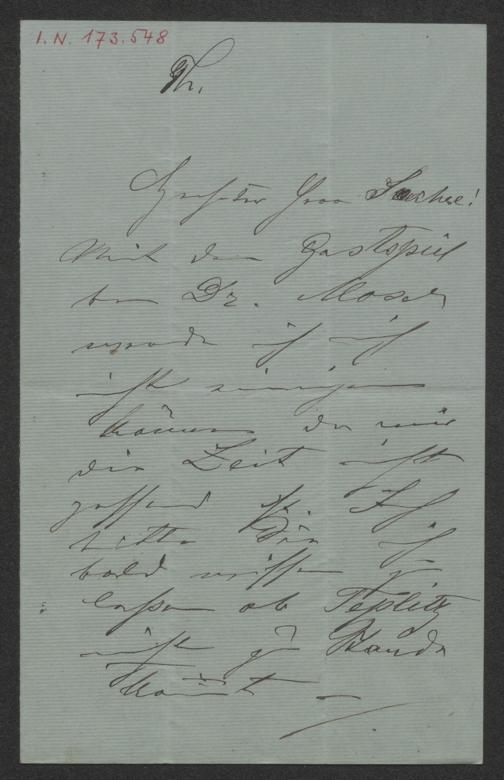 I. N. 173.548
Th.
Geehrter Herr Sachse!
Mit dem Gastspiel
bei Dr. Moser
werde ich mich
nicht einigen
können da mir
die Zeit nicht
passend ist. Ich
bitte Sie mich
bald wissen zu
lassen ob Teplitz
nicht zu Stande
kommt —